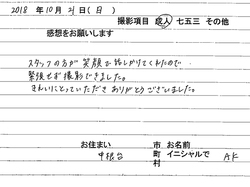 2018 年 10 月 21 日 ( 日 )
撮影項目 成人 七五三 その他
感想をお願いします
スタッフの方が笑顔で話しかけてくれたので
緊張せず撮影できました。
きれいにとっていただきありがとうございました。
お住まい 市町村 お名前 イニシャルで
中根台 AK